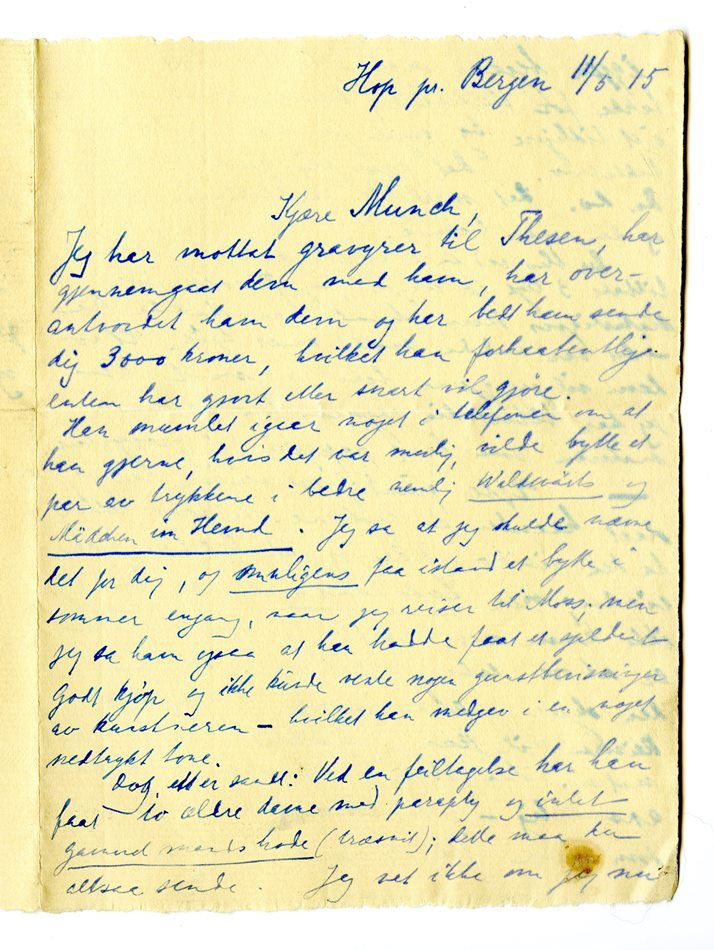 Hop pr. Bergen 11/5 15
Kjære Munch,
Jeg har mottat gravyrer til Thesen, har
gjennemgaat dem med ham, har over-
antvordet ham dem og har bedt ham sende
dig 3000 kroner, hvilket han forhaabentligt
enten har gjort eller snart vil gjøre.
Han mumlet igaar noget i telefonen om at
han gjerne, hvis det var mulig, vilde bytte et
par av trykkene i bedre nemlig Waldwärts og
Mädchen im Hemd. Jeg sa at jeg skulde nævne
det for dig, og muligens faa istand et bytte i
sommer engang, naar jeg reiser til Moss; men
jeg sa ham ogsaa at han hadde faat et splendert
godt kjøp og ikke kunde vente nogen gunstbevisninger
av kunstneren – hvilket han medgav i en noget
nedtrykt tone.
Dog, et er sandt: Ved en feiltagelse har han
faat to ældre dame med paraply og intet
gammel mands hode (træsnit); dette maa du
altsaa sende. Jeg vet ikke om jeg nu